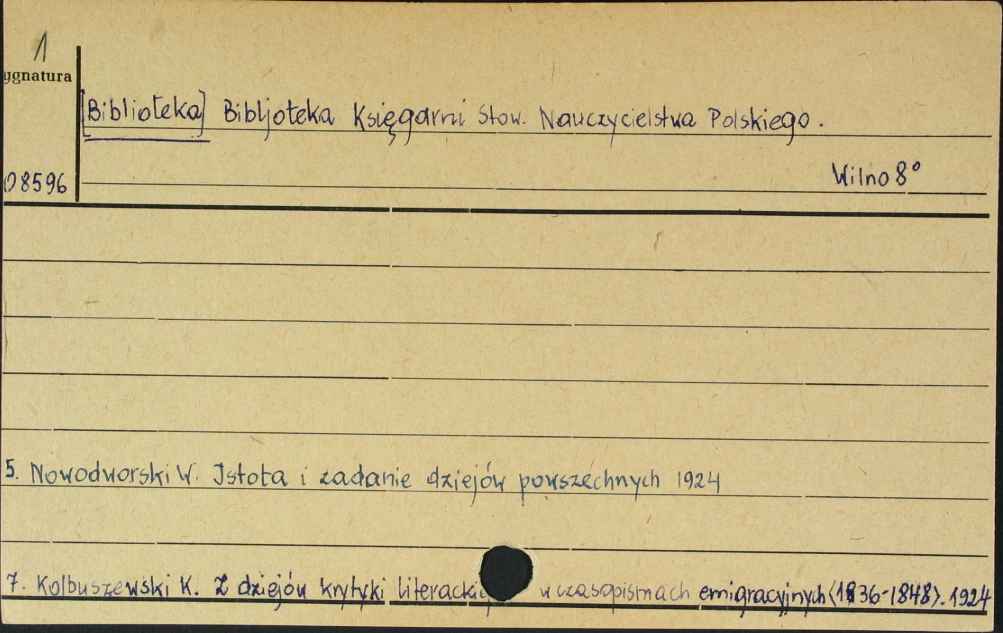 1
ygnatura
[Biblioteka] Bibljoteka Księgarni Stow. Nauczycielstwa Polskiego.
08596
Wilno 8°
5. Nowodworski W. Istota i zadanie dziejów powszechnych 1924
7. Kolbuszewski K. Z dziejów krytyki literackiej w czasopismach emigracyjnych (1836-1848). 1924